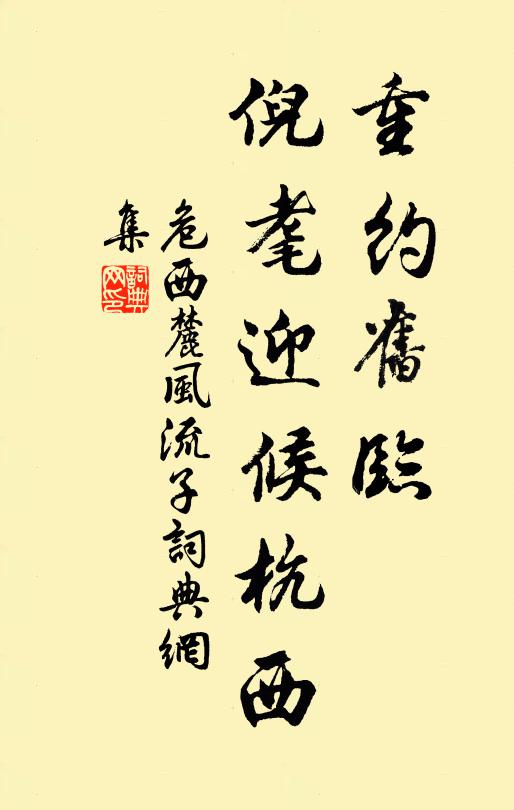 重約舊臨
倪耄迎候杭西
危西麓風流子詞典網
集
詞典
网印